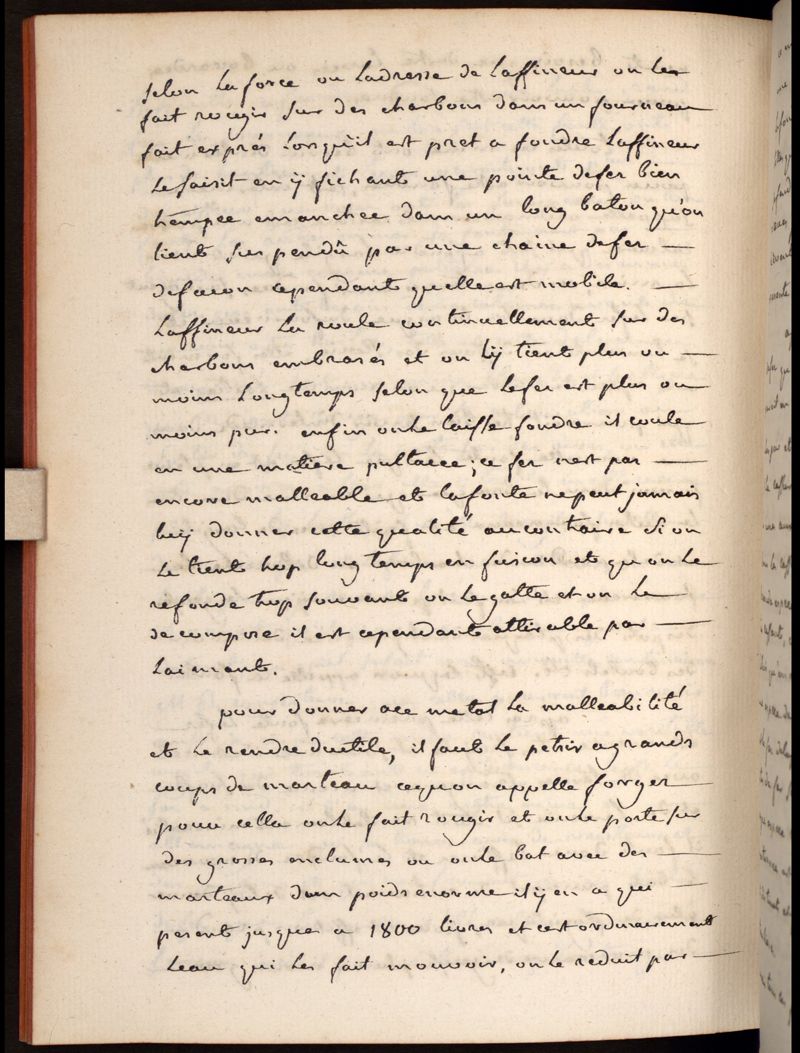 selon la force ou ladresse de laffineur on les
fait rougir sur des charbons dans un fourneau
fait exprés Lorsquil est pret a fondre Laffineur
Le saisit en ÿ fichant une pointe defer bien
trempée emanchée dans un long baton qu'on
tient suspendû par une chaine defer —
defacon cependant quelle est mobile. —
Laffineur La roule continuellement sur des
charbons embrasés et on Lÿ tient plus ou —
moins Longtemps selon que Lefer est plus ou
moins pur. enfin onle laisse fondre il coule
en une matiere pultacée; ce fer nest pas —
encore malleable et lafonte nepeut jamais
luÿ donner cette qualité aucontraire si on
Le tient trop longtemps en fusion et qu on Le
refonde trop souvent on Legatte et on Le
decompose il est cependant attirable par —
Laimant.
pour donner ace metal La malleabilité
et Le rendre ductile, il faut Le petrir agrands
coups de marteau cequon appelle forger
pour cella onle fait rougir et onle porte sur
des grosses enclumes ou onle bat avec des —
marteaux dun poids enorme il ÿ en a qui —
pesent jusques a 1800 livres et cest ordinairement
Leau qui Les fait mouvoir, onle reduit par —